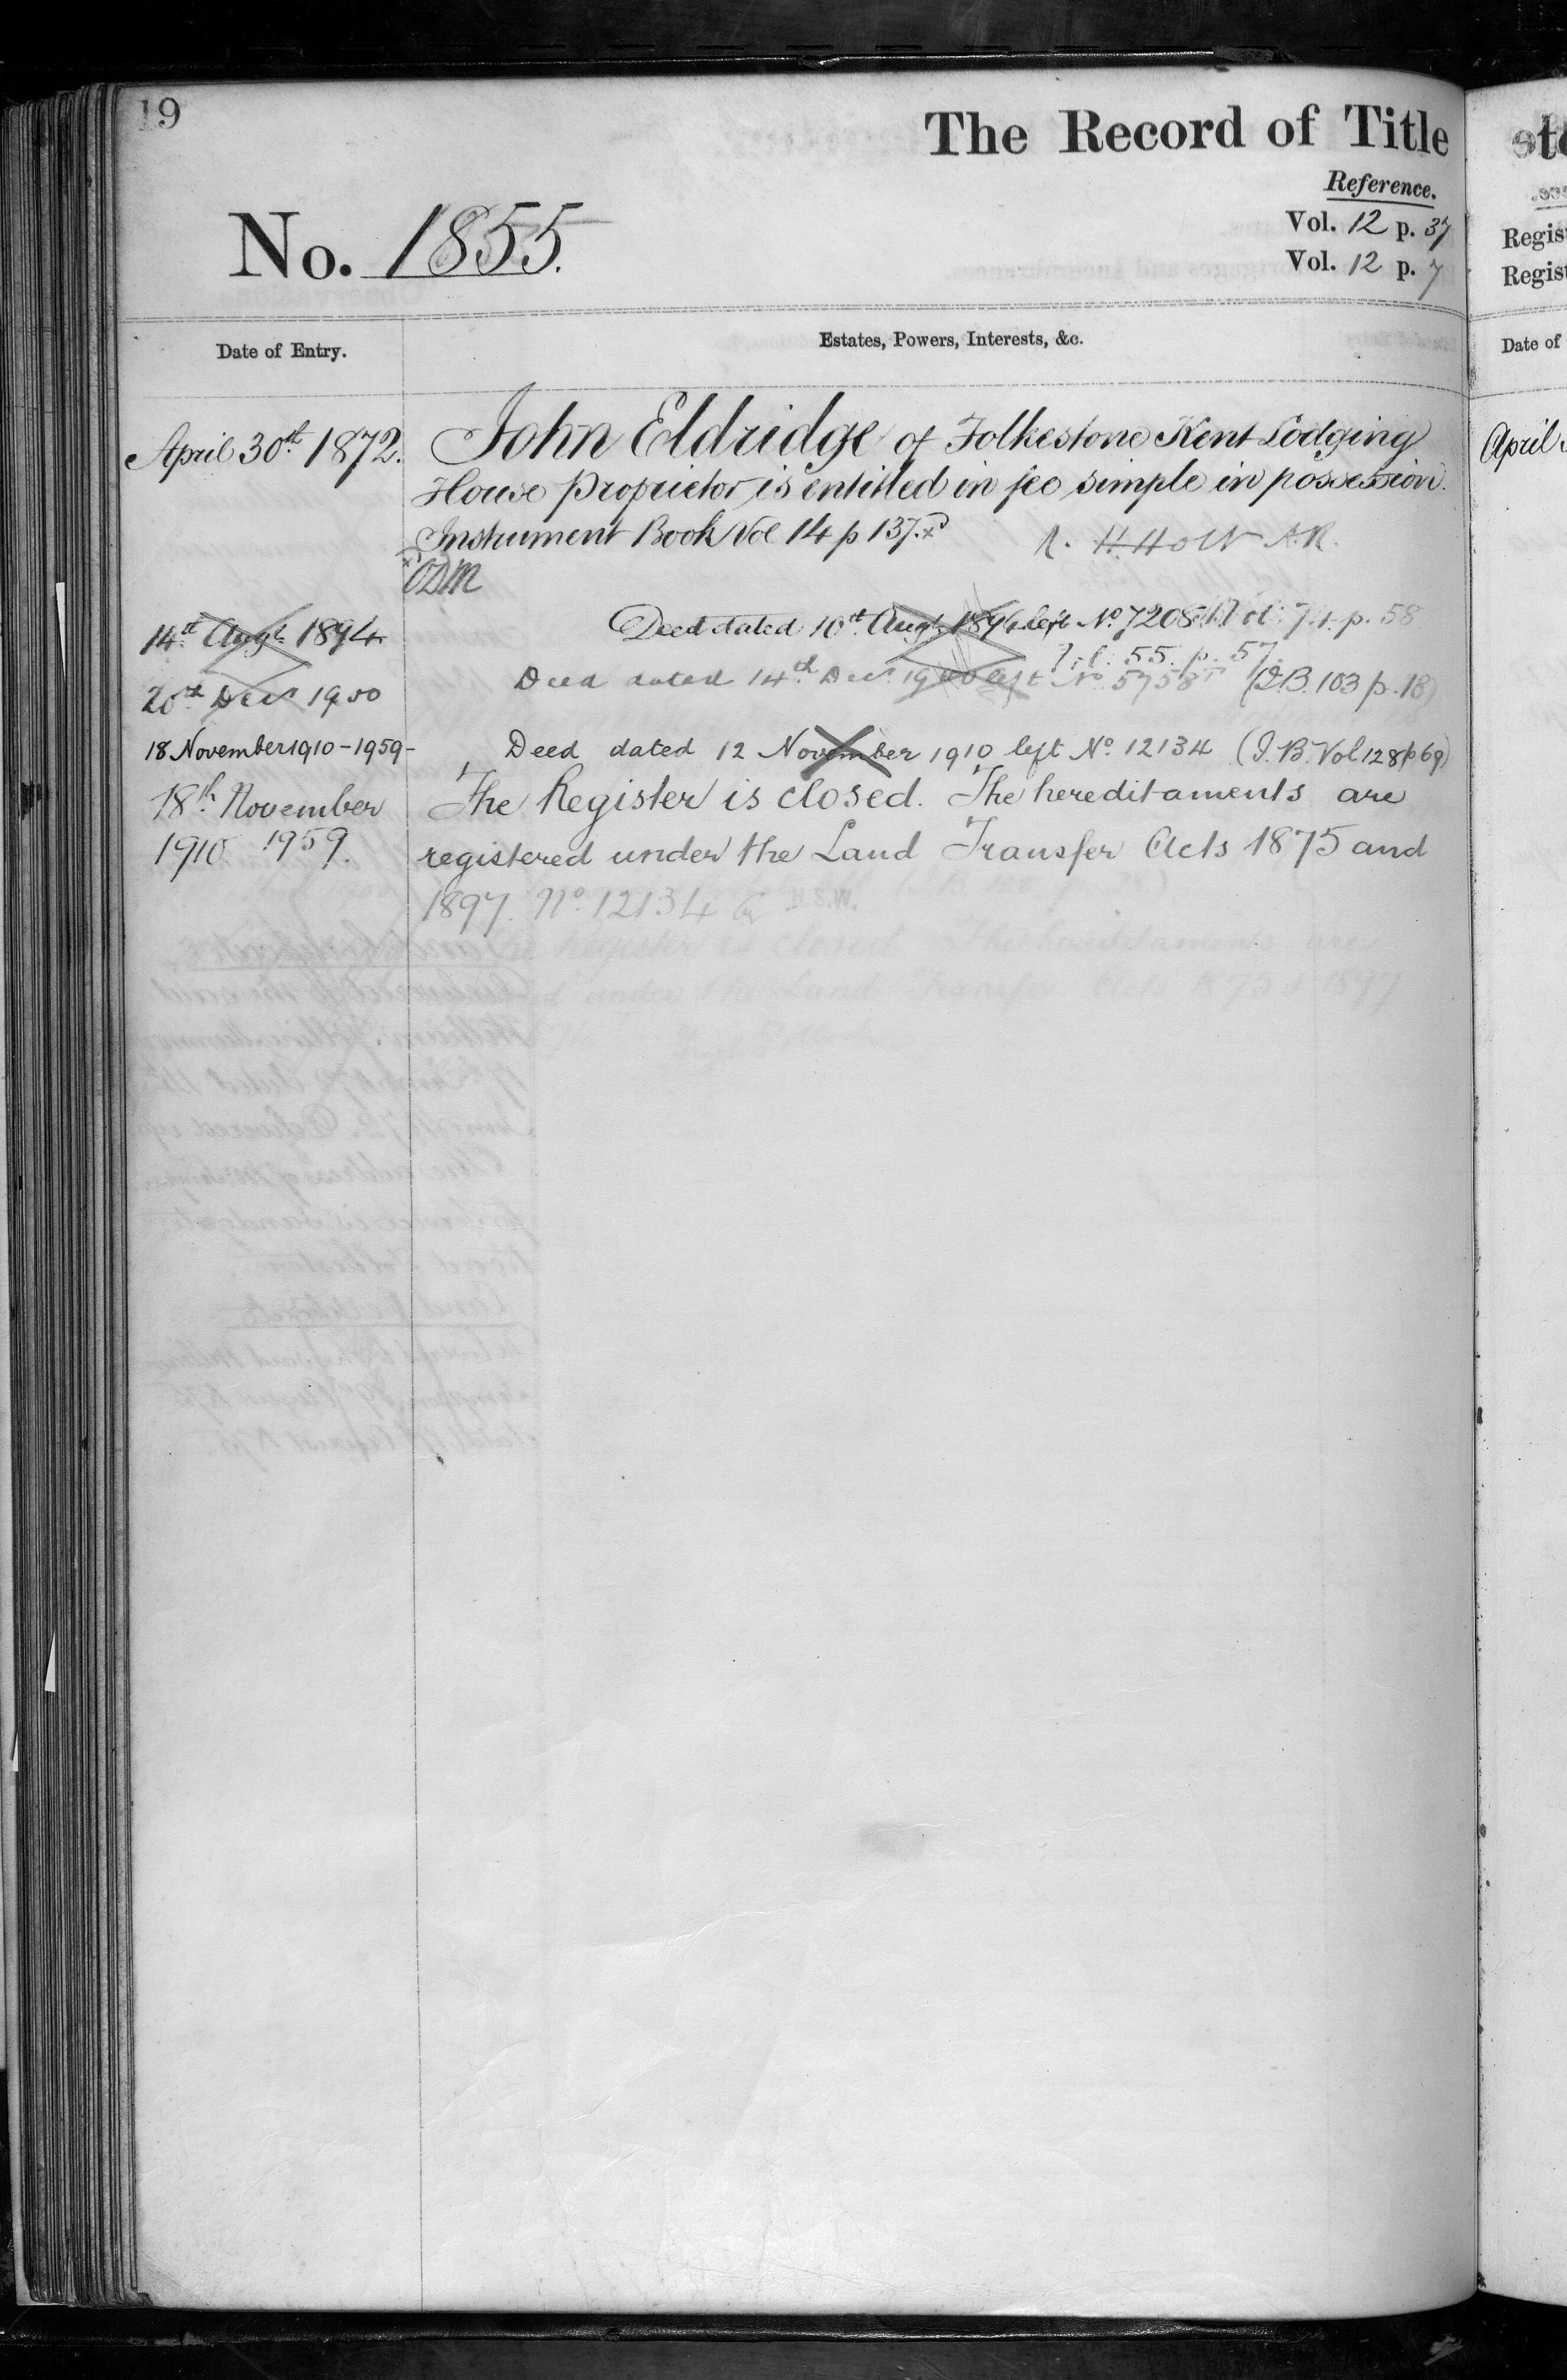 19
The Record of Title
Reference.
No. 1855.
Vol. 12 p. 37
Vol. 12 p. 7
Date of Entry.
Estates, Powers, Interests, &c.
April 30th 1872.
John Eldridge of Folkestone Kent Lodging
House Proprietor is entitled in fee simple in possession.
Instrument Book Vol 14 p 137.
R. H. Holt A.R.
14th Augt. 1894
Deed dated 10th Augt. 1894 left No. 7208 Vol. 74. p. 58
Vol. 55. p. 57
20th Decr. 1900
Deed dated 14th Decr. 1900 left No. 5758 (I.B. 103 p. 18)
18 November 1910-1959-
Deed dated 12 November 1910 left No. 12134 (I.B. Vol 128 p 69)
18th November
1910 1959.
The Register is closed. The hereditaments are
registered under the Land Transfer Acts 1875 and
1897. No. 12134 H.S.W.
Regist
Regist
Date of
April